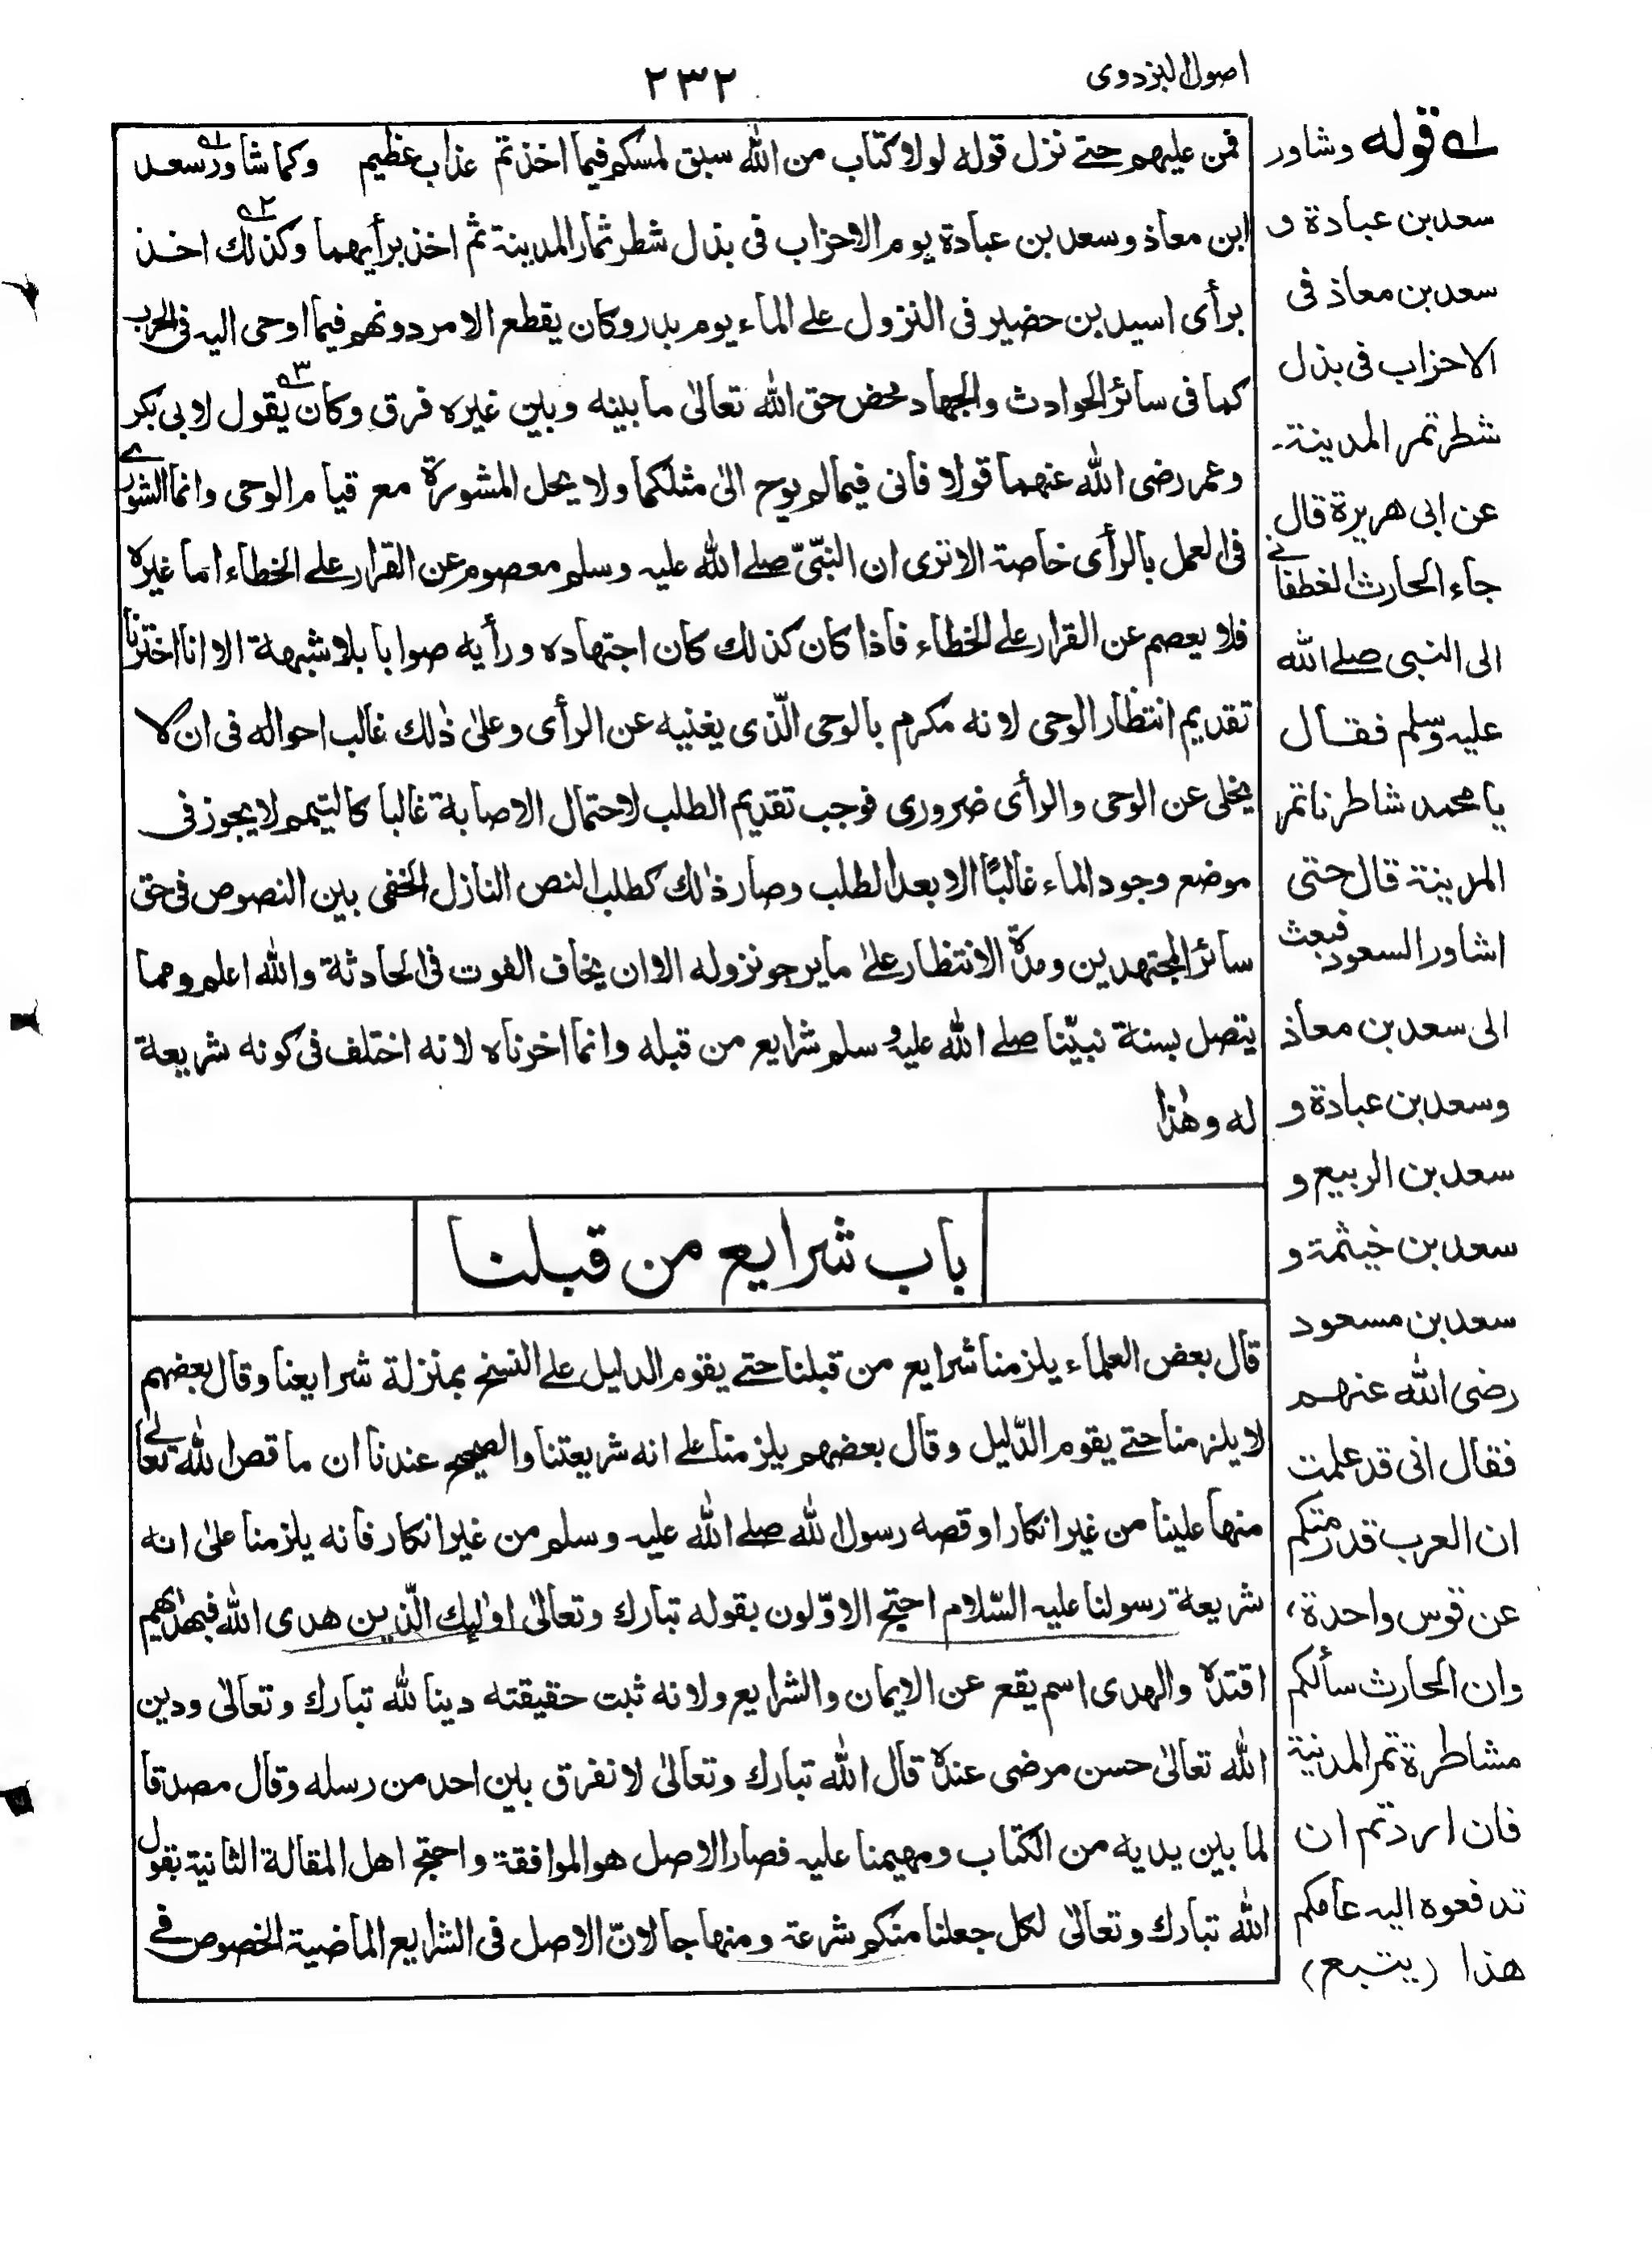 اصول البزدوی
۲۳۲
فمن عليهم حتے نزل قوله لولا كتاب من الله سبق لمسكم فيما اخذتم عذاب عظيم وكما شاور سعد
ابن معاذ وسعد بن عبادة يوم الاحزاب فى بذل شطر ثمار المدينة ثم اخذ برأيهما وكذلك اخذ
برأى اسيد بن حضير فى النزول علے الماء يوم بدر وكان يقطع الامر دونهم فيما اوحى اليه فى الحرب
كما فى سائر الحوادث والجهاد محض حق الله تعالىٰ ما بينه وبين غيره فرق وكان يقول لابى بكر
وعمر رضى الله عنهما قولا فانى فيما لم يوح الىٰ مثلكما ولا يحل المشورة مع قيام الوحى وانما الشورے
فى العمل بالرأى خاصة الا ترى ان النبىّ صلے الله عليه وسلم معصوم عن القرار علے الخطاء اما غيره
فلا يعصم عن القرار علے الخطاء فاذا كان كذلك كان اجتهاده ورأيه صوابا بلا شبهة الا انا اخترنا
تقديم انتظار الوحى لانه مكرم بالوحى الّذى يغنيه عن الرأى وعلىٰ ذٰلك غالب احواله فى ان لا
يخلى عن الوحى والرأى ضرورى فوجب تقديم الطلب لاحتمال الاصابة غالبا كالتيمم لا يجوز فى
موضع وجود الماء غالبًا الا بعد الطلب وصار ذٰلك كطلب النص النازل الخفى بين النصوص فى حق
سائر المجتهدين ومدّة الانتظار علىٰ ما يرجو نزوله الا ان يخاف الفوت فى الحادثة والله اعلم ومما
يتصل بسنة نبيّنا صلے الله عليه وسلم شرايع من قبله وانما اخرناه لانه اختلف فى كونه شريعة
له وهٰذا
باب شرايع من قبلنا
قال بعض العلماء يلزمنا شرايع من قبلنا حتے يقوم الدليل علے النسخ بمنزلة شرايعنا وقال بعضهم
لا يلزمنا حتے يقوم الدّليل وقال بعضهم يلزمنا علے انه شريعتنا والصحيح عندنا ان ما قص الله تعالےٰ
منها علينا من غير انكار او قصه رسول الله صلے الله عليه وسلم من غير انكار فانه يلزمنا علىٰ انه
شريعة رسولنا عليه السّلام احتج الاوّلون بقوله تبارك وتعالىٰ اولٰئك الّذين هدى الله فبهدٰهم
اقتدة والهدى اسم يقع عن الايمان والشرايع ولانه ثبت حقيقته دينا لله تبارك وتعالىٰ ودين
الله تعالىٰ حسن مرضى عندهٗ قال الله تبارك وتعالىٰ لا نفرق بين احد من رسله وقال مصدقا
لما بين يديه من الكتاب ومهيمنا عليه فصار الاصل هو الموافقة واحتج اهل المقالة الثانية بقول
الله تبارك وتعالىٰ لكل جعلنا منكم شرعة ومنهاجا لانّ الاصل فى الشرايع الماضية الخصوص فے
۱ے قوله وشاور
سعد بن عبادة و
سعد بن معاذ فى
الاحزاب فى بذل
شطر تمر المدينة۔
عن ابى هريرة قال
جاء الحارث الغطفانے
الى النبى صلے الله
عليه وسلم فقال
يا محمد شاطرنا تمر
المدينة قال حتى
اشاور السعود فبعث
الى سعد بن معاذ
وسعد بن عبادة و
سعد بن الربيع و
سعد بن خيثمة و
سعد بن مسعود
رضى الله عنهم
فقال انى قد علمت
ان العرب قد رمتكم
عن قوس واحدة،
وان الحارث سألكم
مشاطرة تمر المدينة
فان اردتم ان
تدفعوه اليه عامكم
هذا (يتبع)